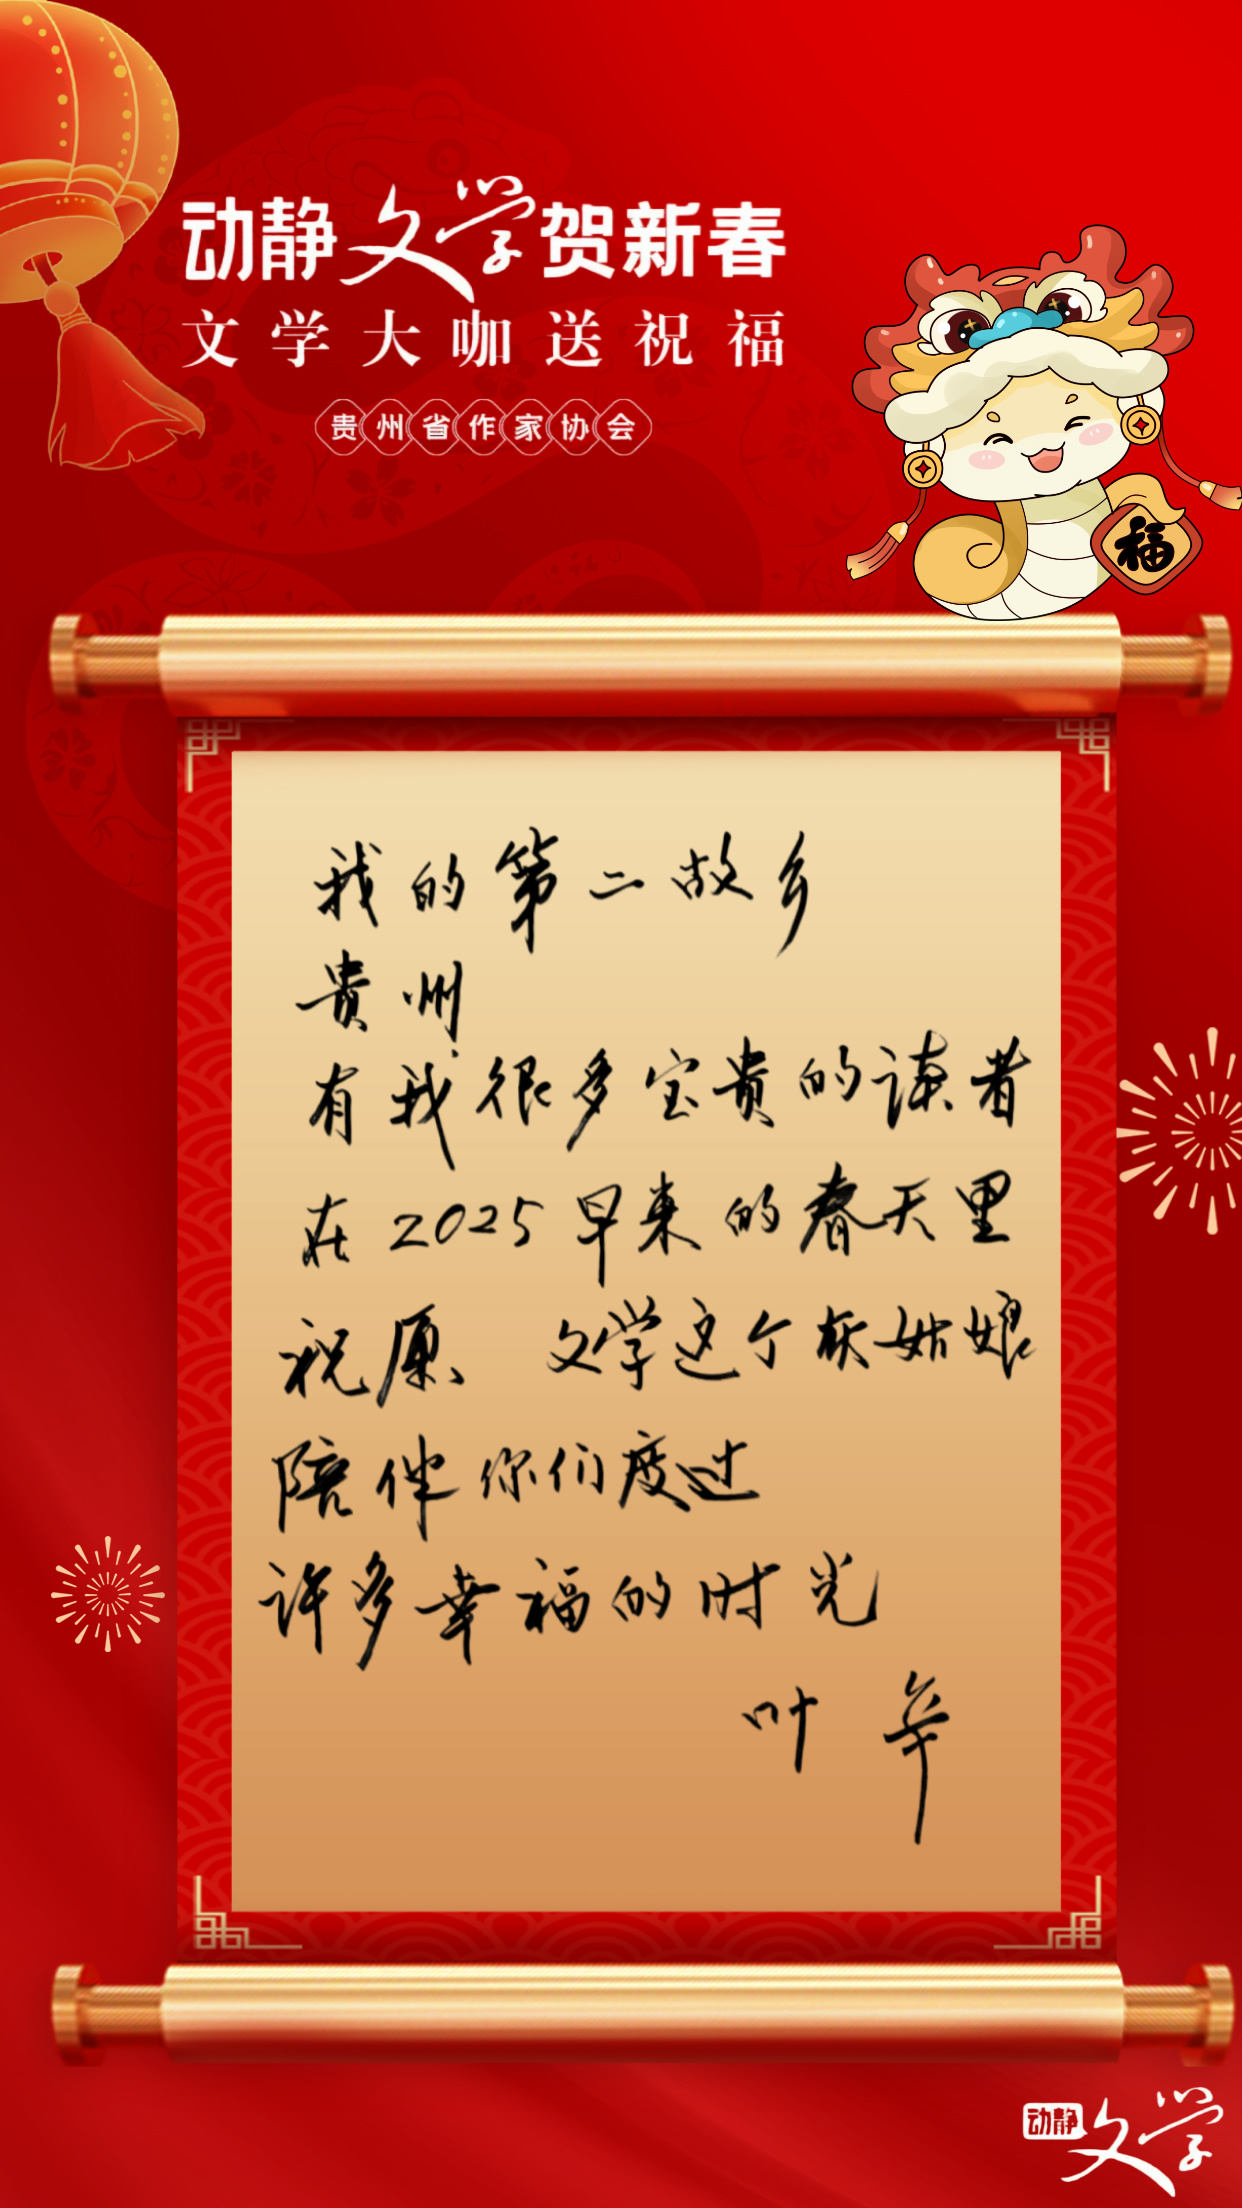 动静文学贺新春
文学大咖送祝福
贵州省作家协会
福
我的第二故乡
贵州
有我很多宝贵的读者
在2025早来的春天里
祝愿 文学这个灰姑娘
陪伴你们度过
许多幸福的时光
叶辛
动静文学